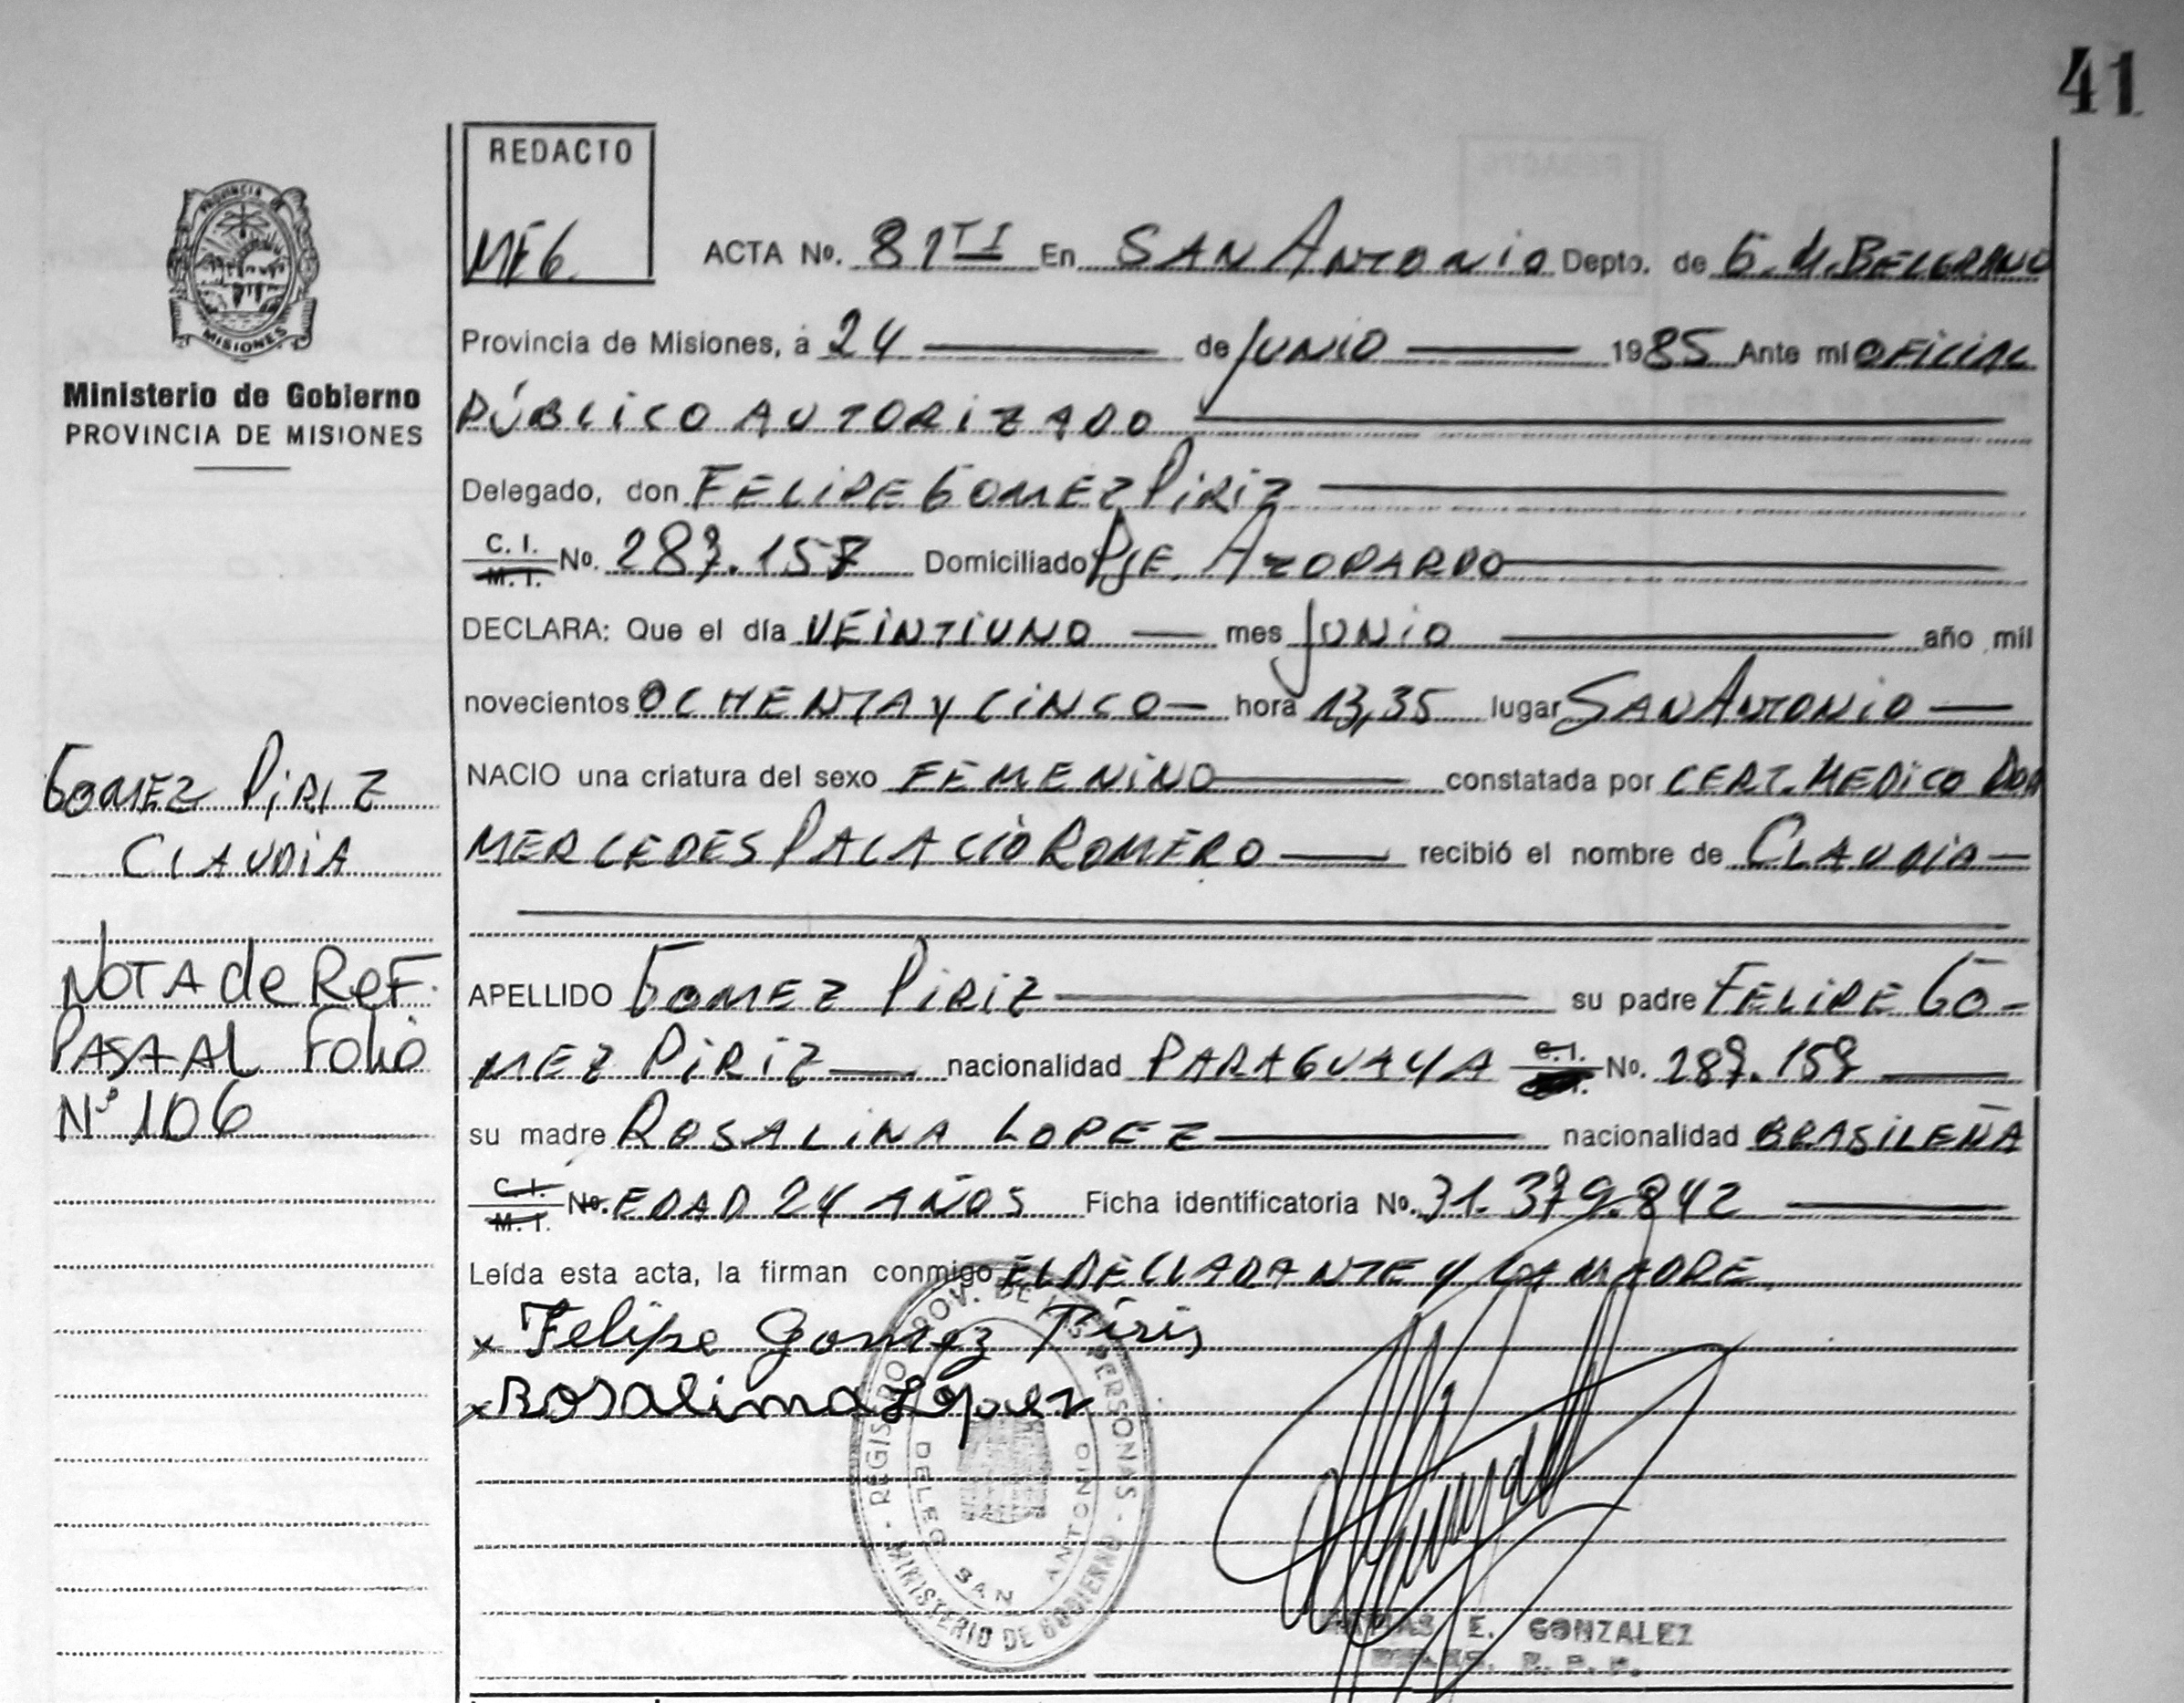 41
REDACTO
ACTA No. 81 TI En SAN ANTONIO Depto. de G. M. BELGRANO
Provincia de Misiones, a 24 de JUNIO 1985 Ante mi OFICIAL
PÚBLICO AUTORIZADO
Ministerio de Gobierno
PROVINCIA DE MISIONES
Delegado, don FELIPE GOMEZ PIRIZ
C. I. M. I. No. 287.157 Domiciliado PJE. AZOPARDO
DECLARA: Que el día VEINTIUNO mes JUNIO año mil
novecientos OCHENTA Y CINCO hora 13,35 lugar SAN ANTONIO
NACIO una criatura del sexo FEMENINO constatada por CERT. MEDICO
MERCEDES PALACIO ROMERO recibió el nombre de CLAUDIA
GOMEZ PIRIZ
CLAUDIA
NOTA de ReF.
PASA AL Folio
Nº 106
APELLIDO GOMEZ PIRIZ su padre FELIPE GO-
MEZ PIRIZ nacionalidad PARAGUAYA C.I. No. 287.157
su madre ROSALINA LOPEZ nacionalidad BRASILEÑA
C. I. M. I. No. EDAD 24 AÑOS Ficha identificatoria No. 31.379.842
Leída esta acta, la firman conmigo EL DECLARANTE Y LA MADRE
x Felipe Gomez Piris
x Rosalima López
REGISTRO PROV. DE LAS PERSONAS
MINISTERIO DE GOBIERNO
DELEG. SAN ANTONIO
E. GONZALEZ